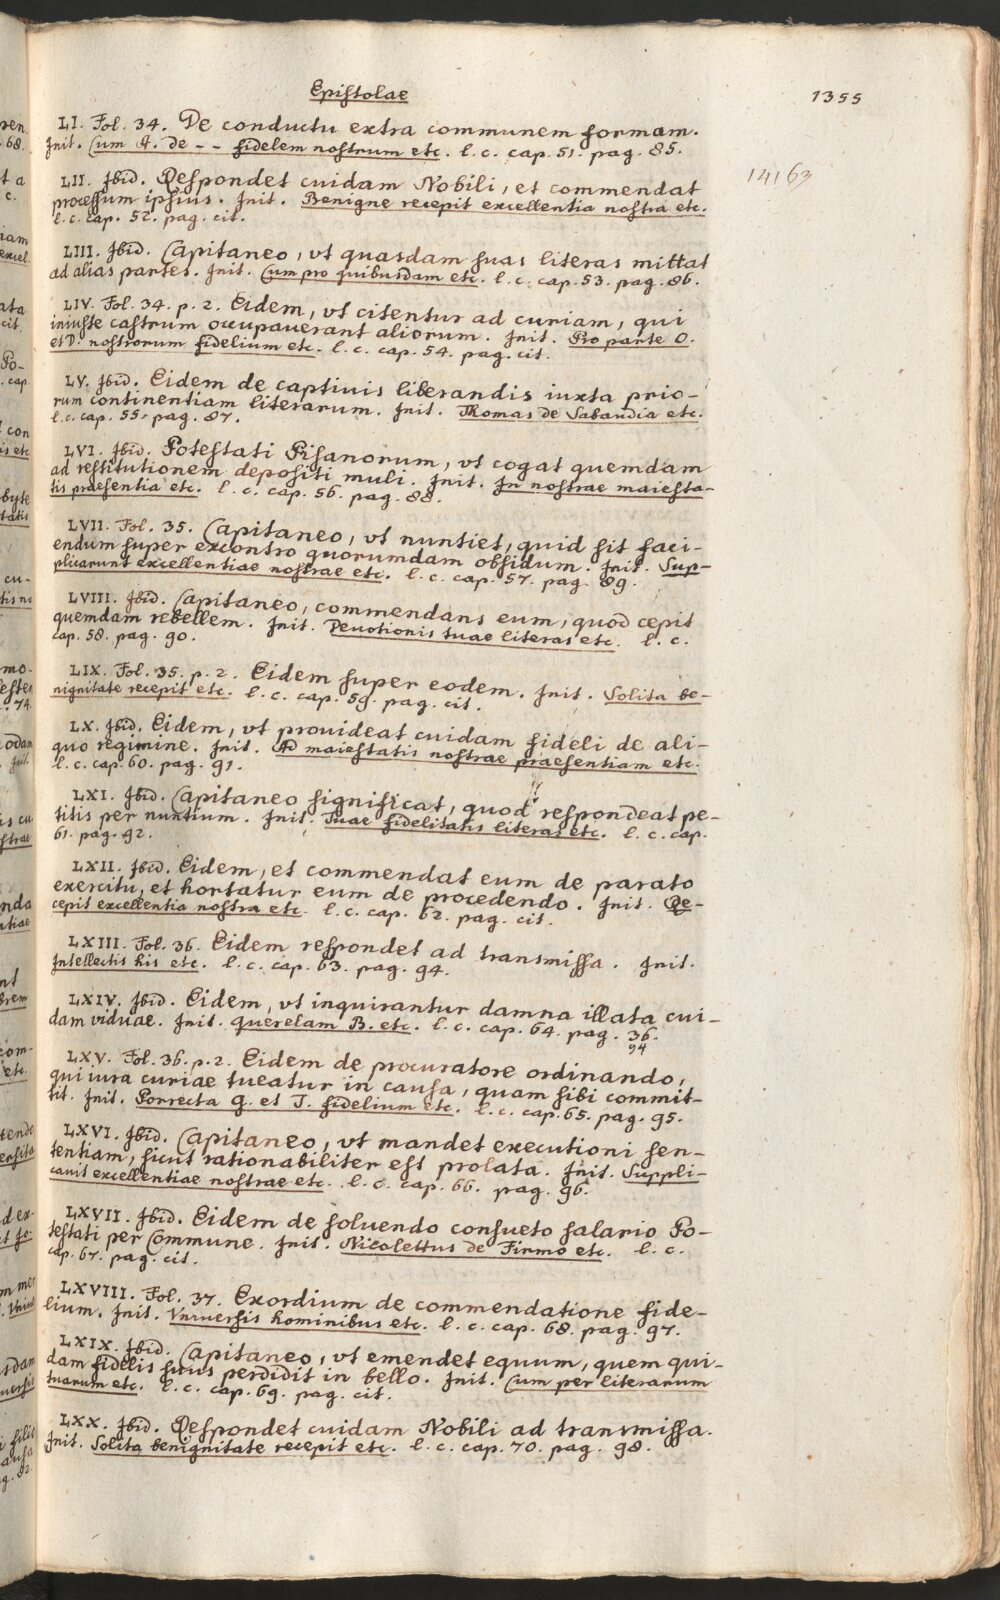 Epistolae
1355
14163
LI. Fol. 34. De conductu extra communem formam.
Init. Cum A. de - - fidelem nostrum etc. l. c. cap. 51. pag. 85.
LII. Ibid. Respondet cuidam Nobili, et commendat
processum ipsius. Init. Benigne recepit excellentia nostra etc.
l. c. cap. 52. pag. cit.
LIII. Ibid. Capitaneo, vt quasdam suas literas mittat
ad alias partes. Init. Cum pro quibusdam etc. l. c. cap. 53. pag. 86.
LIV. Fol. 34. p. 2. Eidem, vt citentur ad curiam, qui
iniuste castrum occupauerant aliorum. Init. Pro parte O.
et D. nostrorum fidelium etc. l. c. cap. 54. pag. cit.
LV. Ibid. Eidem de captiuis liberandis iuxta prio-
rum continentiam literarum. Init. Thomas de Sabaudia etc.
l. c. cap. 55. pag. 87.
LVI. Ibid. Potestati Pisanorum, vt cogat quemdam
ad restitutionem depositi muli. Init. In nostrae maiesta-
tis praesentia etc. l. c. cap. 56. pag. 88.
LVII. Fol. 35. Capitaneo, vt nuntiet, quid sit faci-
endum super excontro quorumdam obsidum. Init. Sup-
plicarunt excellentiae nostrae etc. l. c. cap. 57. pag. 89.
LVIII. Ibid. Capitaneo, commendans eum, quod cepit
quemdam rebellem. Init. Deuotionis tuae literas etc. l. c.
cap. 58. pag. 90.
LIX. Fol. 35. p. 2. Eidem super eodem. Init. Solita be-
nignitate recepit etc. l. c. cap. 59. pag. cit.
LX. Ibid. Eidem, vt prouideat cuidam fideli de ali-
quo regimine. Init. Ad maiestatis nostrae praesentiam etc.
l. c. cap. 60. pag. 91.
LXI. Ibid. Capitaneo significat, quod respondeat pe-
titis per nuntium. Init. Tuae fidelitatis literas etc. l. c. cap.
61. pag. 92.
LXII. Ibid. Eidem, et commendat eum de parato
exercitu, et hortatur eum de procedendo. Init. Re-
cepit excellentia nostra etc. l. c. cap. 62. pag. cit.
LXIII. Fol. 36. Eidem respondet ad transmissa. Init.
Intellectis his etc. l. c. cap. 63. pag. 94.
LXIV. Ibid. Eidem, vt inquirantur damna illata cui-
dam viduae. Init. querelam B. etc. l. c. cap. 64. pag. 36.
94
LXV. Fol. 36. p. 2. Eidem de procuratore ordinando,
qui iura curiae tueatur in causa, quam sibi commit-
tit. Init. Porrecta G. et T. fidelium etc. l. c. cap. 65. pag. 95.
LXVI. Ibid. Capitaneo, vt mandet executioni sen-
tentiam, sicut rationabiliter est prolata. Init. Suppli-
cauit excellentiae nostrae etc. l. c. cap. 66. pag. 96.
LXVII. Ibid. Eidem de soluendo consueto salario Po-
testati per Commune. Init. Nicolettus de Firmo etc. l. c.
cap. 67. pag. cit.
LXVIII. Fol. 37. Exordium de commendatione fide-
lium. Init. Vniuersis hominibus etc. l. c. cap. 68. pag. 97.
LXIX. Ibid. Capitaneo, vt emendet equum, quem qui-
dam fidelis suus perdidit in bello. Init. Cum per literarum
tuarum etc. l. c. cap. 69. pag. cit.
LXX. Ibid. Respondet cuidam Nobili ad transmissa.
Init. Solita benignitate recepit etc. l. c. cap. 70. pag. 98.